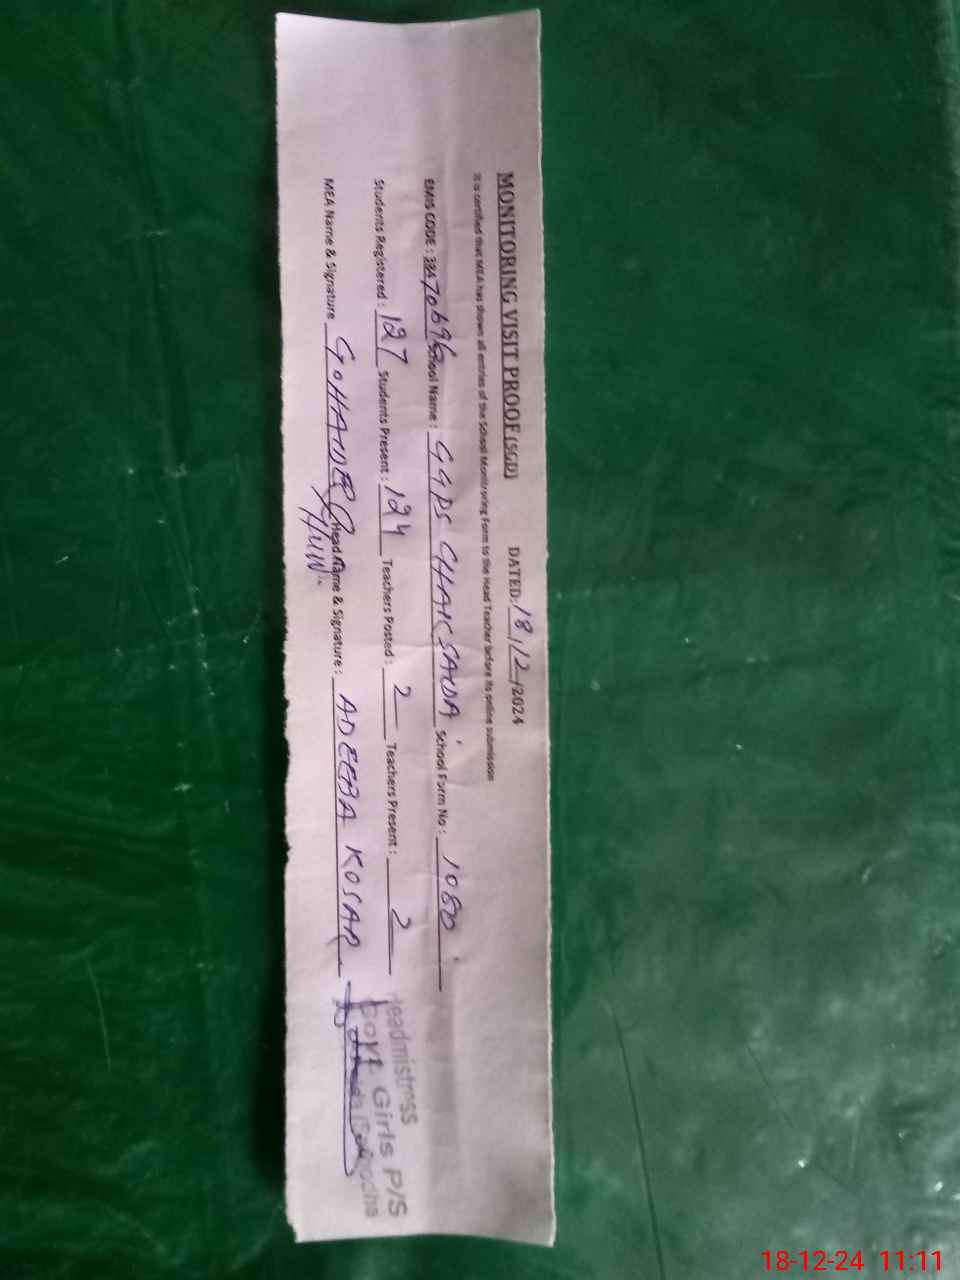 MONITORING VISIT PROOF(SGD) DATED: 18/12/2024
It is certified that MEA has shown all entries of the School Monitroring Form to the Head Teacher before its online submission
EMIS CODE : 38470696 School Name : GGPS CHAK SAIDA School Form No : 1080
Students Registered : 127 Students Present : 124 Teachers Posted : 2 Teachers Present : 2
MEA Name & Signature GOHANDER Head Name & Signature : ADEEBA KOSAR
Headmistress
Govt. Girls P/S
18-12-24 11:11